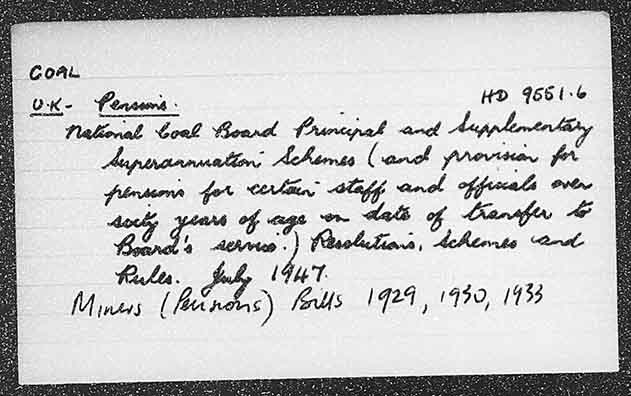 COAL
U.K- Pensions. HD 9551.6
National Coal Board Principal and Supplementary
Superannuation Schemes (and provision for
pensions for certain staff and officials over
sixty years of age on date of transfer to
Board's service.) Resolutions, Schemes and
Rules. July 1947.
Miners (Pensions) Bills 1929, 1930, 1933